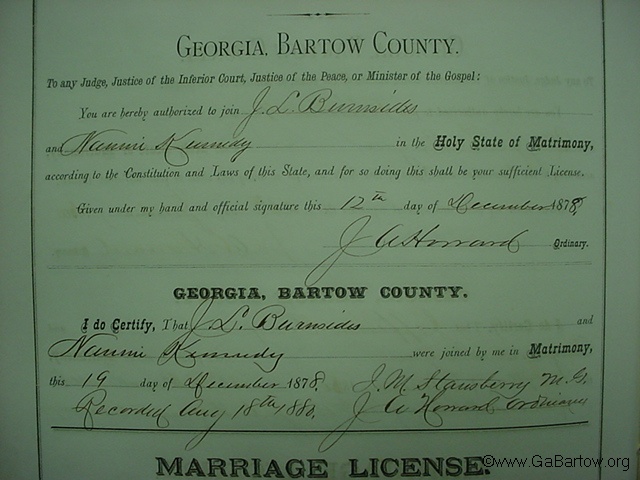 GEORGIA, BARTOW COUNTY.
To any Judge, Justice of the Inferior Court, Justice of the Peace, or Minister of the Gospel:
You are hereby authorized to join J. L. Burnsides
and Nannie Kennedy in the Holy State of Matrimony,
according to the Constitution and Laws of this State, and for so doing this shall be your sufficient License.
Given under my hand and official signature this 12th day of December 1878,
J A Howard Ordinary.
GEORGIA, BARTOW COUNTY.
I do Certify, That J. L. Burnsides and
Nannie Kennedy were joined by me in Matrimony,
this 19 day of December 1878. J. M. Stansberry M. G.
Recorded Aug 18th 1880. J A Howard Ordinary
MARRIAGE LICENSE.
©www.GaBartow.org